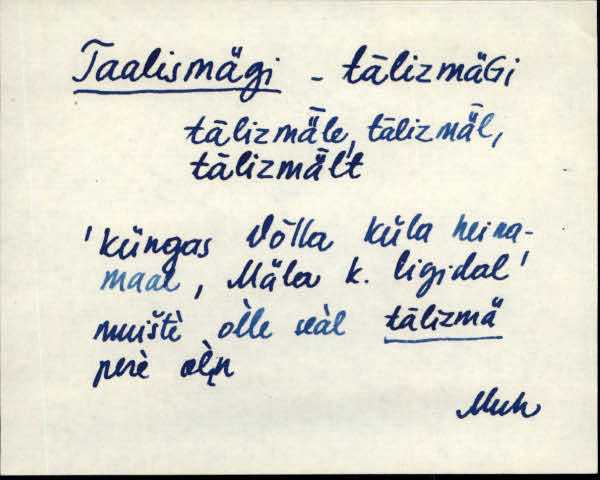 Taalismägi - tālizmäGi
tālizmǟle, tālizmǟl,
tālizmǟlt
'küngas Võlla küla heina-
maal, Mäla k. ligidal'
muištè òlle seàl tālizmä
perè òlņ
Muh